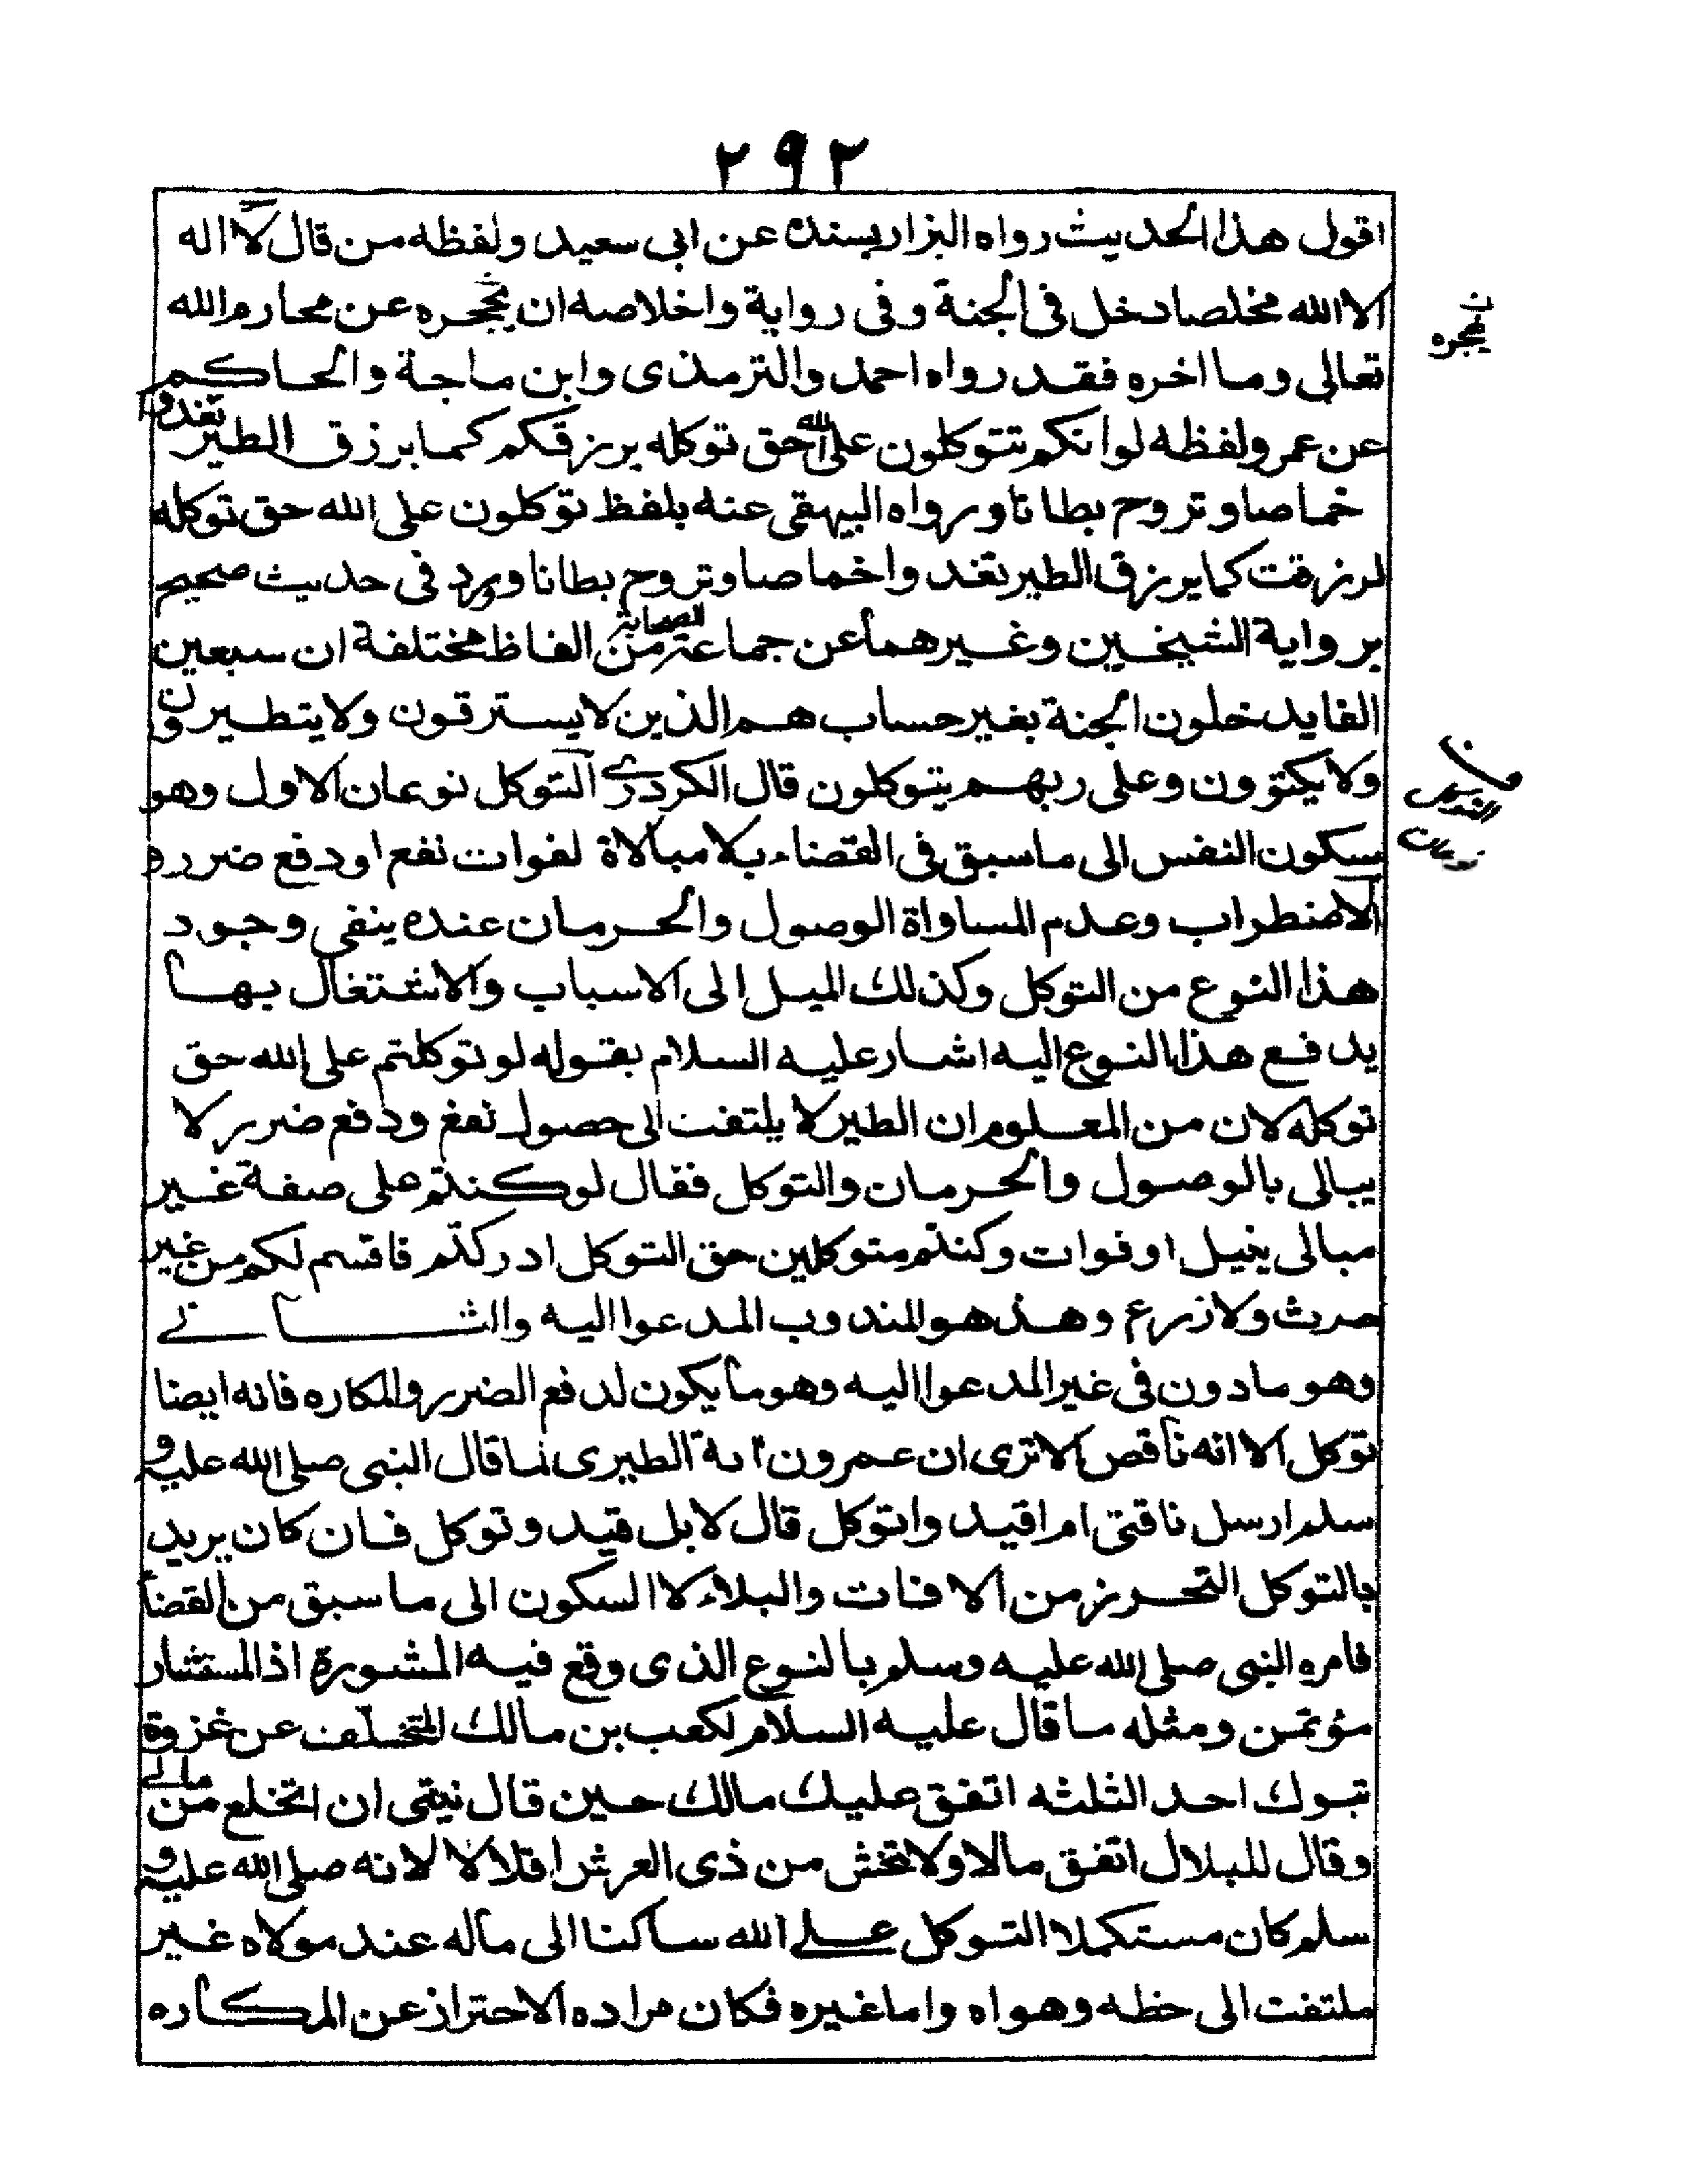 ٢٩٢
اقول هذا الحديث رواه البزار بسنده عن ابى سعيد ولفظه من قال لا اله
الا الله مخلصا دخل فى الجنة وفى رواية واخلاصه ان يحجره عن محارم الله
تعالى وما اخره فقد رواه احمد والترمذى وابن ماجة والحاكم
عن عمر ولفظه لو انكم تتوكلون على الله حق توكله يرزقكم كما يرزق الطير تغدوا
خماصا وتروح بطانا ورواه البيهقى عنه بلفظ توكلون على الله حق توكله
لرزقت كما يرزق الطير تغدوا خماصا وتروح بطانا وورد فى حديث صحيح
برواية الشيخين وغيرهما عن جماعة من الصحابة الفاظ مختلفة ان سبعين
الفا يدخلون الجنة بغير حساب هم الذين لا يسترقون ولا يتطيرون
ولا يكتوون وعلى ربهم يتوكلون قال الكردرى التوكل نوعان الاول وهو
سكون النفس الى ما سبق فى القضاء بلا مبالاة لفوات نفع او دفع ضرر و
الاضطراب وعدم المساواة الوصول والحرمان عنده ينفى وجود
هذا النوع من التوكل وكذلك الميل الى الاسباب والاشتغال بها
يدفع هذا النوع اليه اشار عليه السلام بقوله لو توكلتم على الله حق
توكله لان من المعلوم ان الطير لا يلتفت الى حصول نفع ودفع ضرر لا
يبالى بالوصول والحرمان والتوكل فقال لو كنتم على صفة غير
مبالى بنيل او فوات وكنتم متوكلين حق التوكل ادركتم فاقسم لكم من غير
حرث ولا زرع وهذ هو المندوب المدعوا اليه والثانے
وهو مادون فى غير المدعوا اليه وهو ما يكون لدفع الضرر والمكاره فانه ايضا
توكل الا انه ناقص الا ترى ان عمرو بن الطيرى لما قال النبى صلى الله عليه و
سلم ارسل ناقتى ام اقيد واتوكل قال لا بل قيد وتوكل فان كان يريد
بالتوكل التحرز من الافات والبلاء لا السكون الى ما سبق من القضاء
فامره النبى صلى الله عليه وسلم بالنوع الذى وقع فيه المشورة اذ المستشار
مؤتمن ومثله ما قال عليه السلام لكعب بن مالك المتخلف عن غزوة
تبوك احد الثلثه اتفق عليك مالك حين قال نيتى ان اتخلع من مالے
وقال للبلال اتفق مالا ولا تخش من ذى العرش اقلالا لانه صلى الله عليه و
سلم كان مستكملا التوكل علے الله ساكنا الى ماله عند مولاه غير
ملتفت الى حظه وهواه واما غيره فكان مراده الاحتراز عن المكاره
ن
يحجره
نوعان